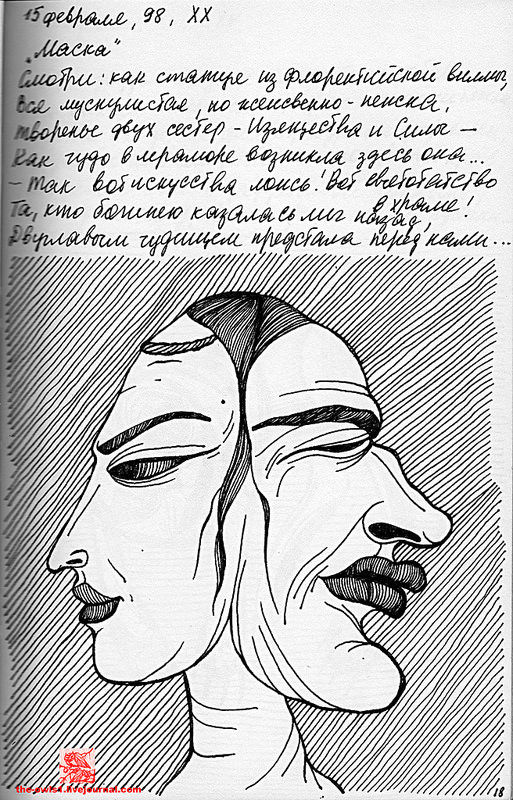 15 февраля, 98, XX
„Маска"
Смотри: как статуе из флорентийской виллы,
Вся мускулистая, но женственно-нежна,
творенье двух сестер - Изящества и Силы -
Как чудо в мраморе возникла здесь она...
- так вот искусства ложь! Вот святотатство в храме!
Та, кто богинею казалась миг назад,
Двуглавым чудищем предстала перед нами...
the-owls4.livejournal.com
18